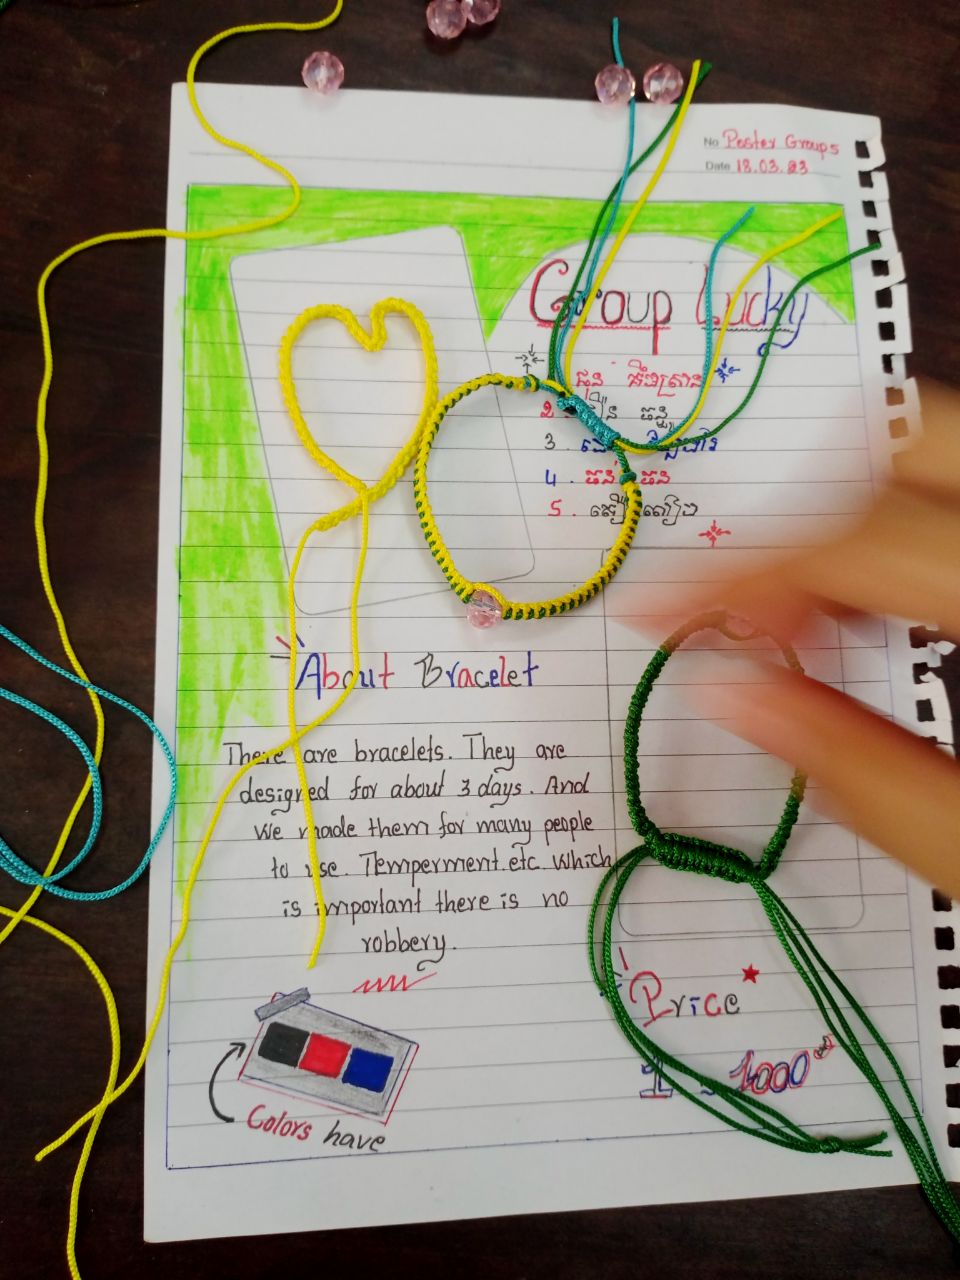 No Poster Group 5
Date 18.03.23
Group Lucky
ជួន គឹមស្រាន
2.
3.
4. ធន់ ធន
5. គឿ សៀង
About Bracelet
There are bracelets. They are
designed for about 3 days. And
We made them for many people
to use. Temperment.etc which
is important there is no
robbery.
Price
1 = 1000
Colors have